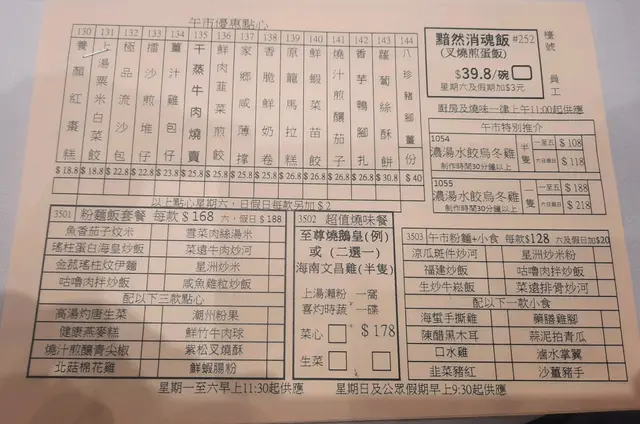 午市優惠點心
130 131 132 133 134 135 136 137 138 139 140 141 142 143 144
養顏紅棗糕
上湯粟米白菜餃
極品流沙包
擂沙煎堆仔
薑汁雞包仔
干蒸牛肉燒賣
鮮肉韭菜煎餃
家鄉咸薄撐
香脆鮮奶卷
原籠馬拉糕
鮮蝦菜苗餃
燒汁煎釀茄子
香芋鴨腳扎
蘿蔔絲酥餅
八珍豬腳薑 份
$18.8 $18.8 $22.8 $22.8 $23.8 $25.8 $25.8 $25.8 $25.8 $26.8 $26.8 $26.8 $26.8 $30.8 $40
以上點心星期六,日假日每款另加$2
黯然消魂飯 #252
(叉燒煎蛋飯)
$39.8/碗
星期六及假期加$3元
檯號
員工
廚房及燒味一律上午11:00起供應
午市特別推介
1054
濃湯水餃烏冬雞
制作時間30分鐘以上
半隻
一至五 $108
六日假日 $118
1055
濃湯水餃烏冬雞
制作時間30分鐘以上
一隻
一至五 $188
六日假日 $218
3501 粉麵飯套餐 每款$168 六,假日$188
魚香茄子炆米 雪菜肉絲湯米
瑤柱蛋白海皇炒飯 菜遠牛肉炒河
金菇瑤柱炆伊麵 星洲炒米
咕嚕肉拼炒飯 咸魚雞粒炒飯
配以下三款點心
高湯灼唐生菜 潮州粉果
健康燕麥糕 鮮竹牛肉球
燒汁煎釀青尖椒 紫松叉燒酥
北菇棉花雞 鮮蝦腸粉
3502 超值燒味餐
至尊燒鵝皇(例)
或 (二選一)
海南文昌雞(半隻)
上湯瀨粉 一窩
喜灼時蔬 一碟
菜心 $178
生菜
3503 午市粉麵+小食 每款$128 六及假日加$20
涼瓜斑件炒河 星洲炒米粉
福建炒飯 咕嚕肉拼炒飯
生炒牛崧飯 菜遠排骨炒河
配以下一款小食
海蜇手撕雞 藥膳雞腳
陳醋黑木耳 蒜泥拍青瓜
口水雞 滷水掌翼
韭菜豬紅 沙薑豬手
星期一至六早上11:30起供應 星期日及公眾假期早上9:30起供應